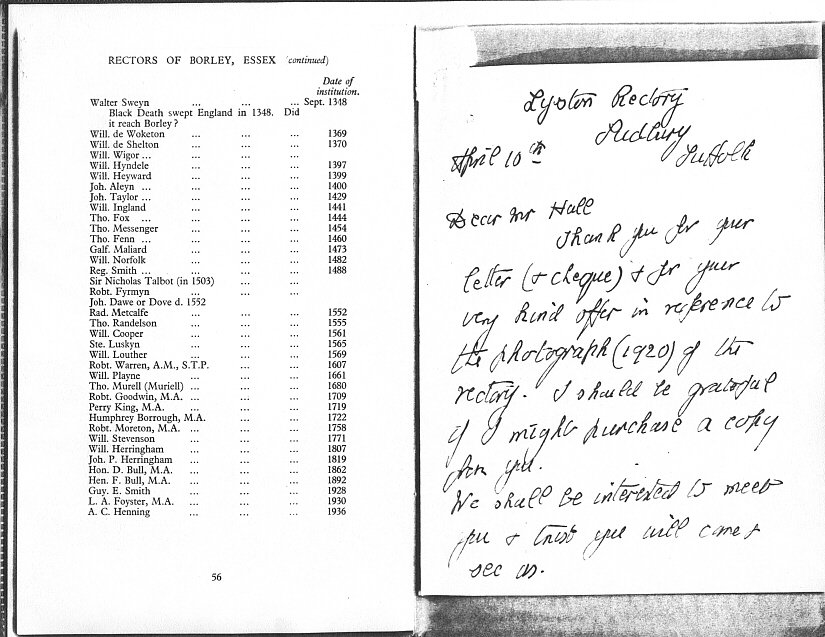 RECTORS OF BORLEY, ESSEX (continued)
Date of
institution.
Walter Sweyn ... ... ... Sept. 1348
Black Death swept England in 1348. Did
it reach Borley?
Will. de Woketon ... ... ... 1369
Will. de Shelton ... ... ... 1370
Will. Wigor ... ... ...
Will. Hyndele ... ... ... 1397
Will. Heyward ... ... ... 1399
Joh. Aleyn ... ... ... ... 1400
Joh. Taylor ... ... ... ... 1429
Will. Ingland ... ... ... 1441
Tho. Fox ... ... ... ... 1444
Tho. Messenger ... ... ... 1454
Tho. Fenn ... ... ... ... 1460
Galf. Maliard ... ... ... 1473
Will. Norfolk ... ... ... 1482
Reg. Smith ... ... ... ... 1488
Sir Nicholas Talbot (in 1503) ... ...
Robt. Fyrmyn ... ... ...
Joh. Dawe or Dove d. 1552
Rad. Metcalfe ... ... ... 1552
Tho. Randelson ... ... ... 1555
Will. Cooper ... ... ... 1561
Ste. Luskyn ... ... ... 1565
Will. Louther ... ... ... 1569
Robt. Warren, A.M., S.T.P. ... ... 1607
Will. Playne ... ... ... 1661
Tho. Murell (Muriell) ... ... ... 1680
Robt. Goodwin, M.A. ... ... ... 1709
Perry King, M.A. ... ... ... 1719
Humphrey Borrough, M.A. ... ... 1722
Robt. Moreton, M.A. ... ... ... 1758
Will. Stevenson ... ... ... 1771
Will. Herringham ... ... ... 1807
Joh. P. Herringham ... ... ... 1819
Hon. D. Bull, M.A. ... ... ... 1862
Hen. F. Bull, M.A. ... ... ... 1892
Guy. E. Smith ... ... ... 1928
L. A. Foyster, M.A. ... ... ... 1930
A. C. Henning ... ... ... 1936
56
Lyston Rectory
Sudbury
Suffolk
April 10th
Dear Mr Hall
Thank you for your
letter (+ cheque) + for your
very kind offer in reference to
the photograph (1920) of the
rectory. I should be grateful
if I might purchase a copy
from you.
We shall be interested to meet
you + trust you will come +
see us.